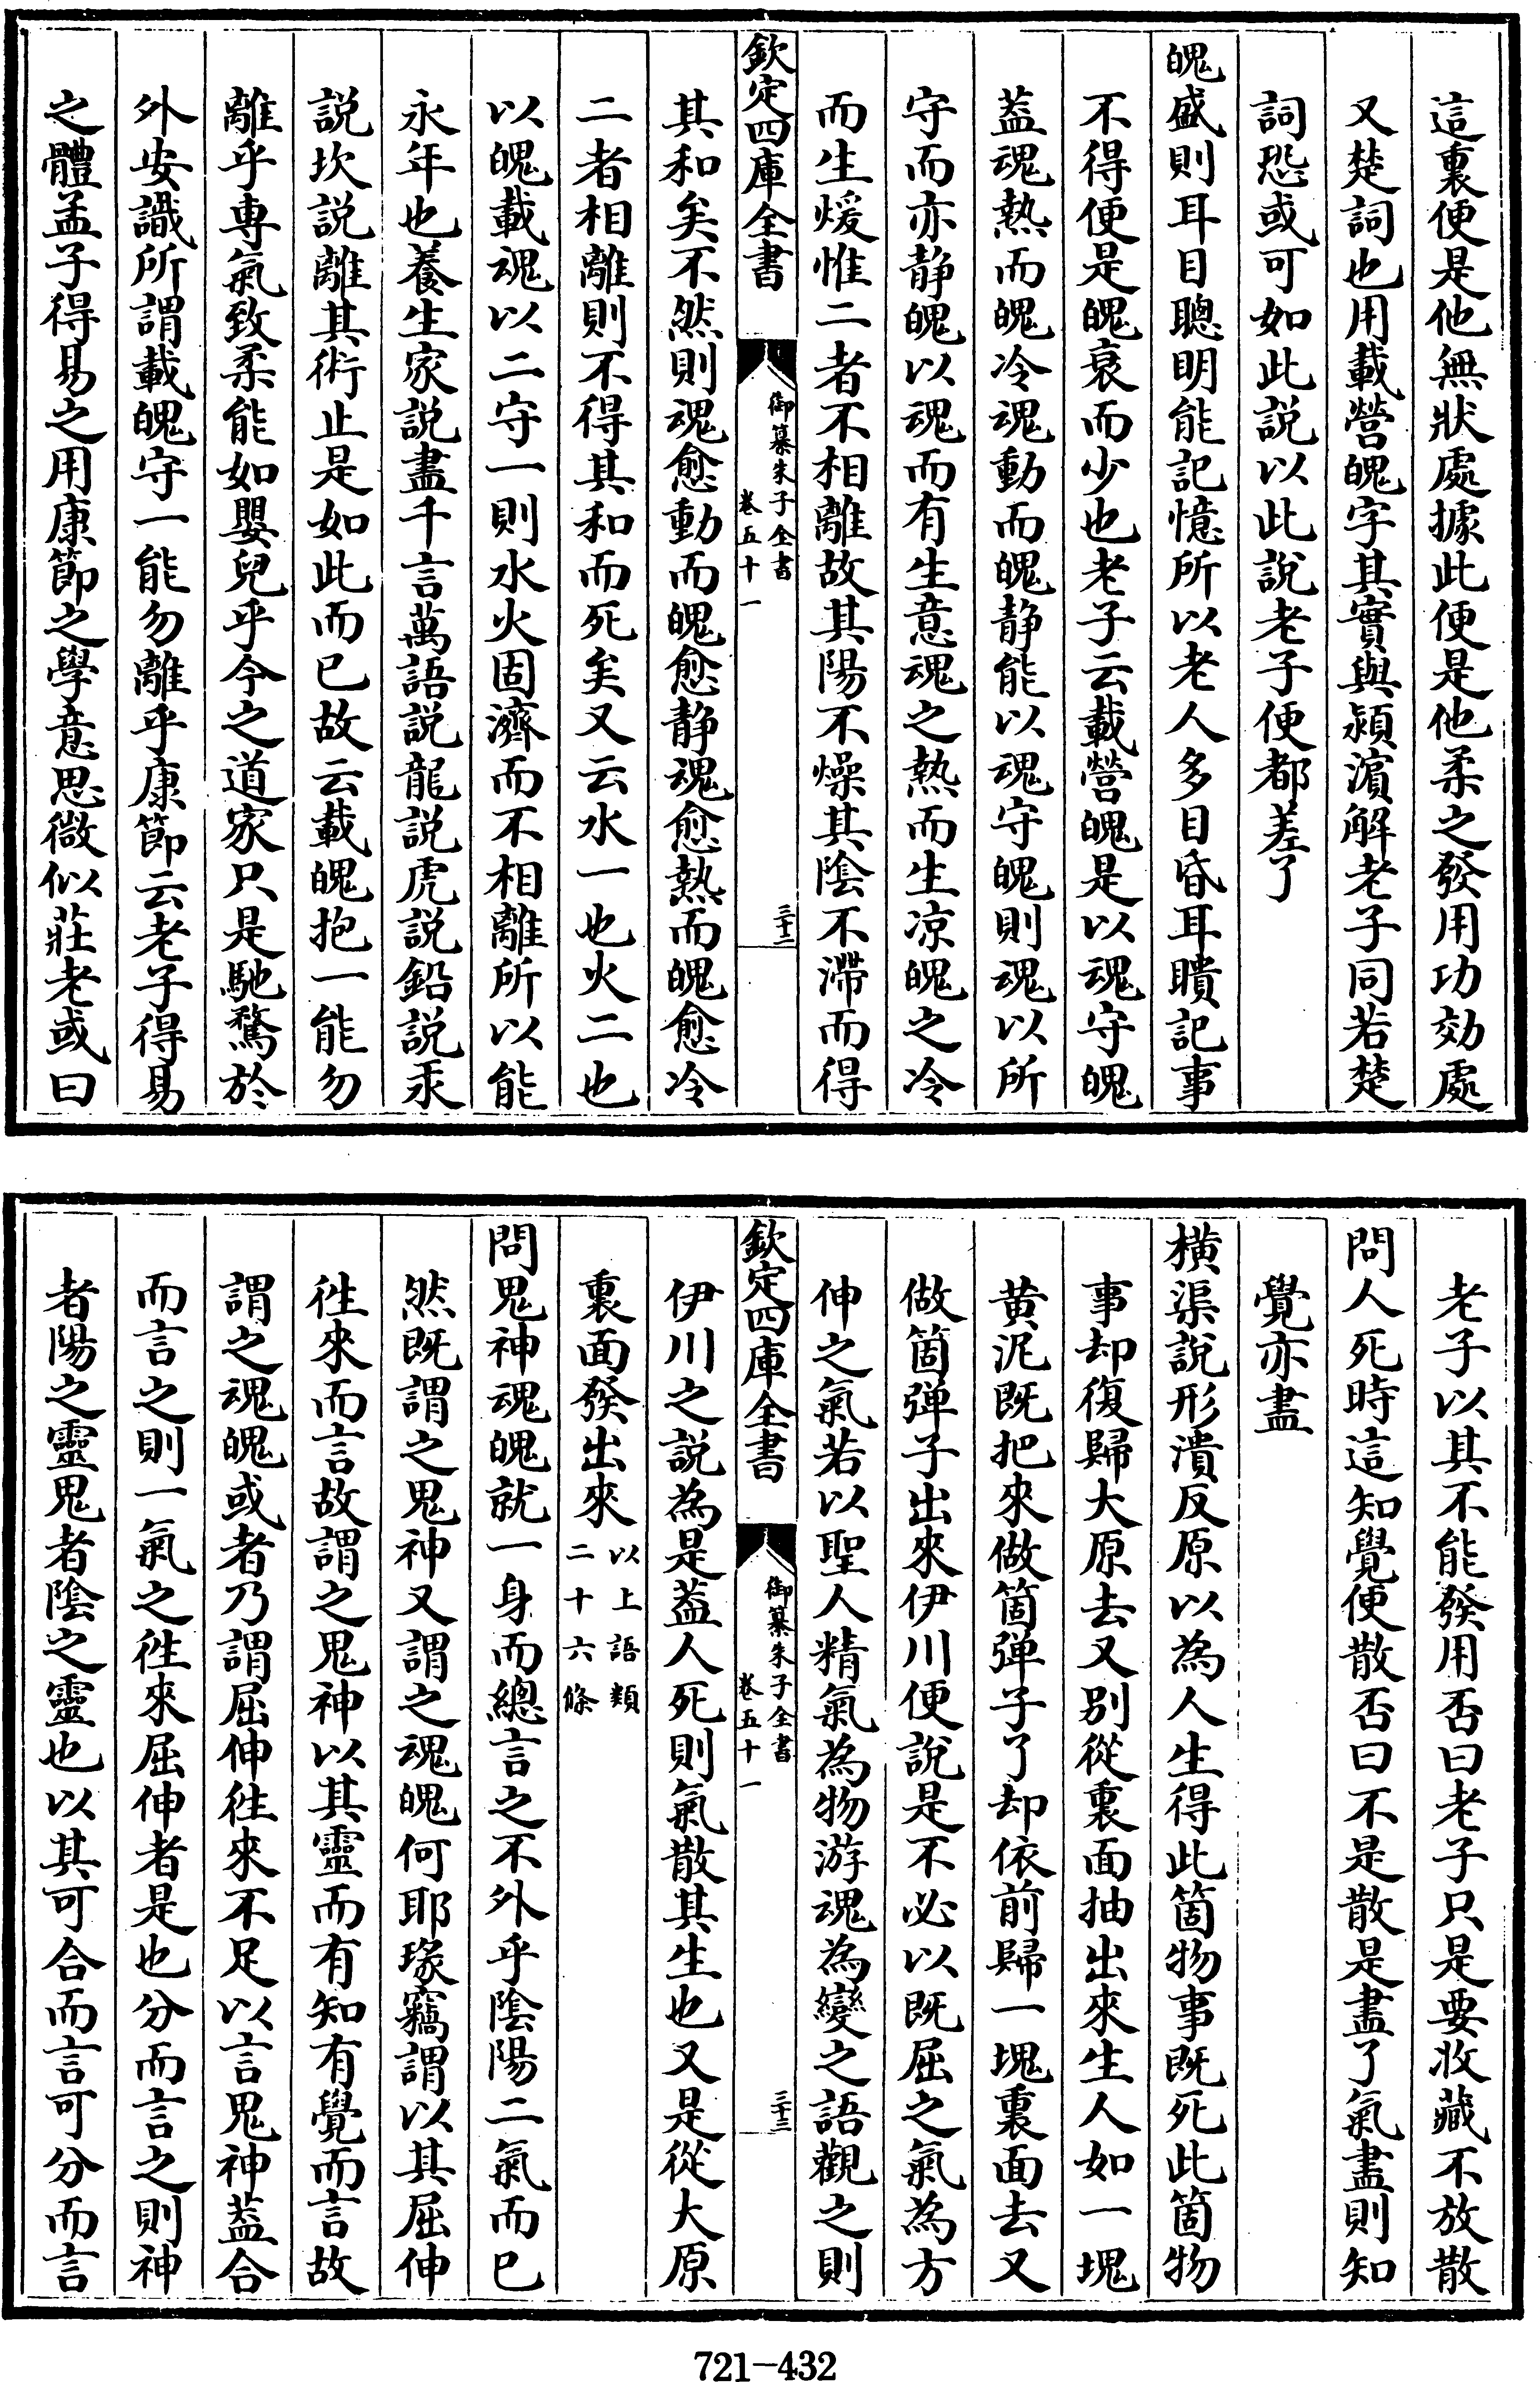 這裏便是他無狀處據此便是他柔之發用功効處
又楚詞也用載營魄字其實與潁濵解老子同若楚
詞恐或可如此説以此說老子便都差了
魄盛則耳目聰明能記憶所以老人多目昏耳聵記事
不得便是魄衰而少也老子云載營魄是以魂守魄
葢魂熱而魄冷魂動而魄静能以魂守魄則魂以所
守而亦静魄以魂而有生意魂之熱而生凉魄之冷
而生煖惟二者不相離故其陽不燥其陰不滯而得
欽定四庫全書
御纂朱子全書
卷五十一
三十二
其和矣不然則魂愈動而魄愈静魂愈熱而魄愈冷
二者相離則不得其和而死矣又云水一也火二也
以魄載魂以二守一則水火固濟而不相離所以能
永年也養生家説盡千言萬語説龍説虎説鉛説汞
説坎説離其術止是如此而已故云載魄抱一能勿
離乎專氣致柔能如嬰兒乎今之道家只是馳騖於
外安識所謂載魄守一能勿離乎康節云老子得易
之體孟子得易之用康節之學意思微似莊老或曰
老子以其不能發用否曰老子只是要收藏不放散
問人死時這知覺便散否曰不是散是盡了氣盡則知
覺亦盡
橫渠説形潰反原以為人生得此箇物事既死此箇物
事却復歸大原去又别從裏面抽出來生人如一塊
黄泥既把來做箇弹子了却依前歸一塊裏面去又
做箇弹子出來伊川便說是不必以既屈之氣為方
伸之氣若以聖人精氣為物游魂為變之語觀之則
欽定四庫全書
御纂朱子全書
卷五十一
三十三
伊川之説為是葢人死則氣散其生也又是從大原
裏面發出來以上語類二十六條
問鬼神魂魄就一身而總言之不外乎陰陽二氣而已
然既謂之鬼神又謂之魂魄何耶瑑竊謂以其屈伸
徃來而言故謂之鬼神以其靈而有知有覺而言故
謂之魂魄或者乃謂屈伸徃來不足以言鬼神葢合
而言之則一氣之徃來屈伸者是也分而言之則神
者陽之靈鬼者陰之靈也以其可合而言可分而言
721-432